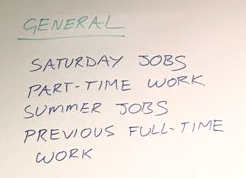 GENERAL
SATURDAY JOBS
PART-TIME WORK
SUMMER JOBS
PREVIOUS FULL-TIME
WORK